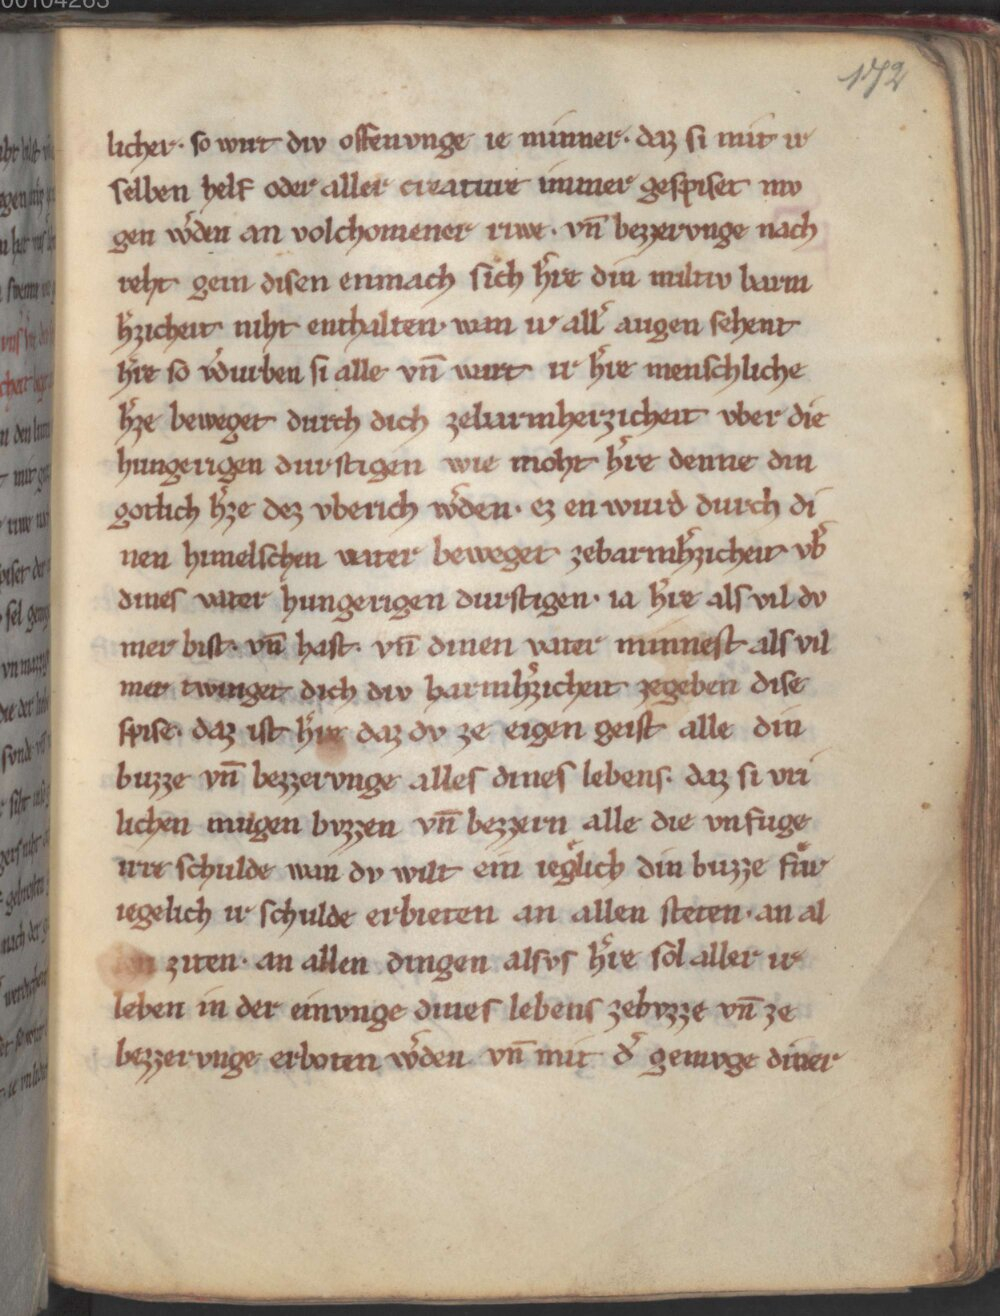 172
licher· so wirt div offenvnge ie minner· daz si mit ir
selben helf oder aller creature immer gespiset mv
gen wͦden an volchomener riwe· vn̄ bezzervnge nach
reht gein disen enmach sich h͛re din miltiv barm
h͛zicheit niht enthalten· wan ir all͛ augen sehent
h͛re so vͦdurben si alle vn̄ wirt ir h͛re menschliche
h͛ze beweget durch dich zebarmherzicheit vber die
hungerigen durstigen wie moht h͛re denne din
gotlich h͛ze dez vberich w͛den· ez en wurd durch di
nen himelschen vater beweget zebarmh͛zicheit vb͛
dines vater hungerigen durstigen· ia h͛re als vil dv
mer bist· vn̄ hast· vn̄ dinen vater minnest als vil
mer twinget dich div barmh͛zicheit zegeben dise
spise· daz ist h͛re daz dv ze eigen geist alle din
buzze vn̄ bezzervnge alles dines lebens· daz si vri
lichen mugen bvzzen vn̄ bezzern alle die vnfuge
irre schulde wan dv wilt ein ieglich din buzze für
iegelich ir schulde erbieten an allen steten· an al
len ziten· an allen dingen alsvs h͛re sol aller ir
leben in der einvnge dines lebens zebvzze vn̄ ze
bezzervnge erboten w͛den vn̄ mit d͛ genvge diner